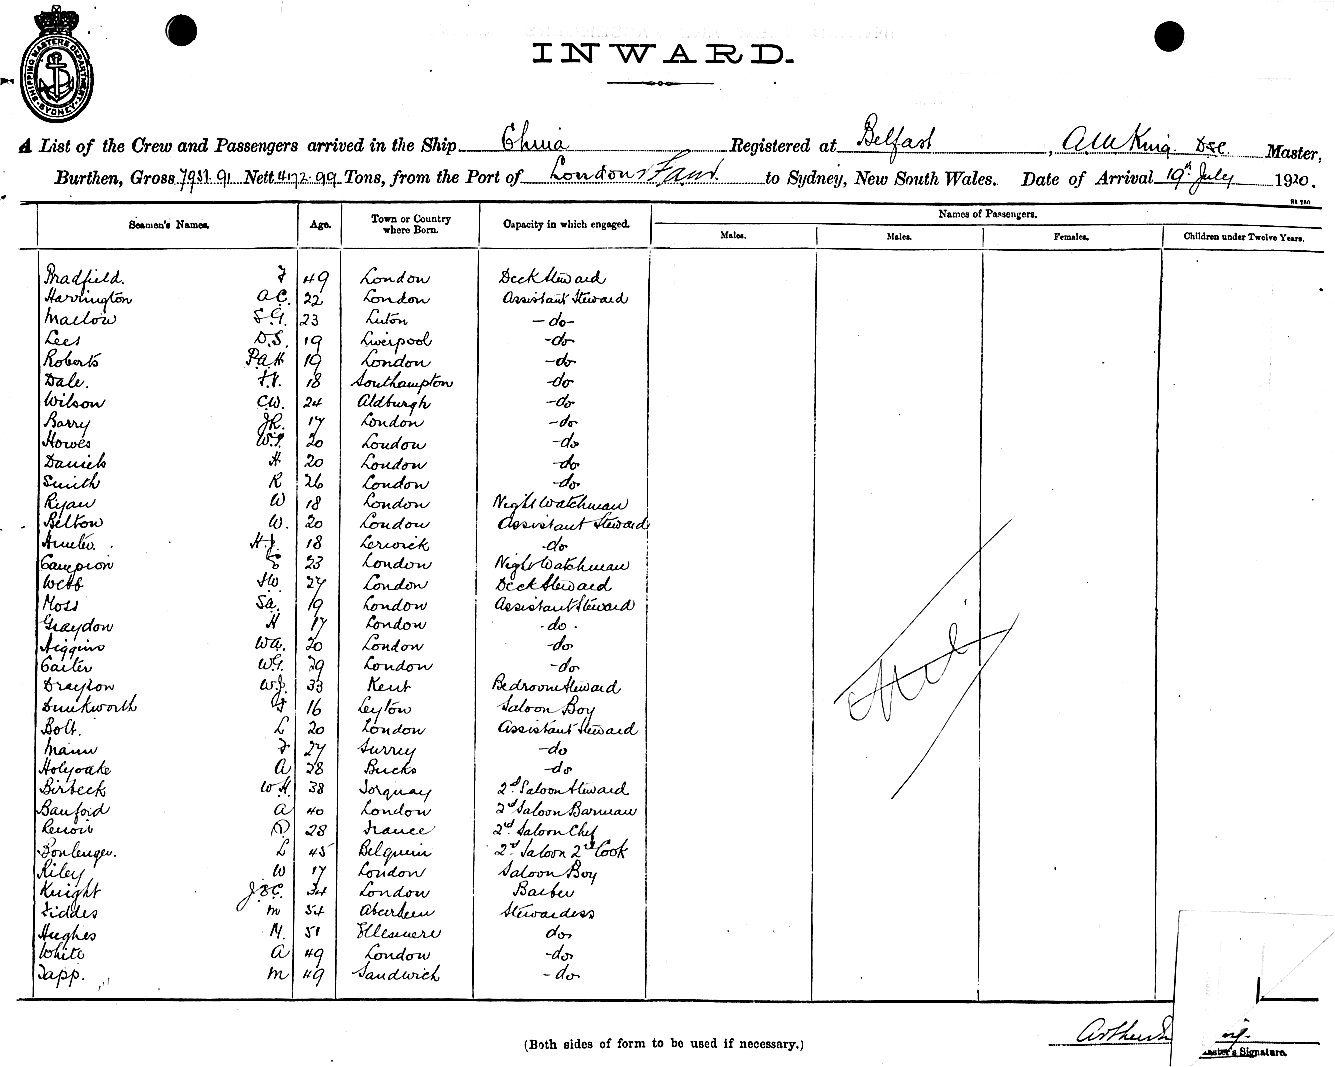 SHIPPING MASTERS DEPARTMENT SYDNEY
INWARD.
A List of the Crew and Passengers arrived in the Ship China Registered at Belfast, A W King DSC Master,
Burthen, Gross 7931.91 Nett 4172.99 Tons, from the Port of London to Sydney, New South Wales. Date of Arrival 19th July 1920.
Seamen's Names. Age. Town or Country where Born. Capacity in which engaged. Names of Passengers.
Males. Males. Females. Children under Twelve Years.
Bradfield. F 49 London Deck Steward
Harrington A.C. 22 London Assistant Steward
Marlow S.G. 23 Luton -do-
Lees D.S. 19 Liverpool -do-
Roberts P.A.H 19 London -do-
Dale. 18 Southampton -do-
Wilson C.W. 24 Aldburgh -do-
Barry J.R. 17 London -do-
Howes 20 London -do
Daniels H 20 London -do-
Smith R 26 London -do-
Ryan W 18 London Night Watchman
Belton W. 20 London Assistant Steward
H.J. 18 Lerwick -do
Campion 23 London Night Watchman
Webb 27 London Deck Steward
Moss S.A. 19 London Assistant Steward
Graydon H 17 London -do-
Higgins W.A. 20 London -do-
Carter W.G. 29 London -do-
Drayton W.J. 33 Kent Bedroom Steward
Duckworth 16 Leyton Saloon Boy
Bolt. L 20 London Assistant Steward
Mann F 27 Surrey -do
Holyoake A 28 Bucks -do
Birbeck W.H. 38 Torquay 2nd Saloon Steward
Banford A 40 London 2nd Saloon Barman
Renoir 28 France 2nd Saloon Chef
Boulenger. L 45 Belguim 2nd Saloon 2nd Cook
Riley W 17 London Saloon Boy
Knight 34 London Barber
Fiddes M 54 Aberdeen Stewardess
Hughes M. 51 Ellesmere do
White A 49 London -do
Tapp. M 49 Sandwich -do-
Nil
(Both sides of form to be used if necessary.)
Master's Signature.